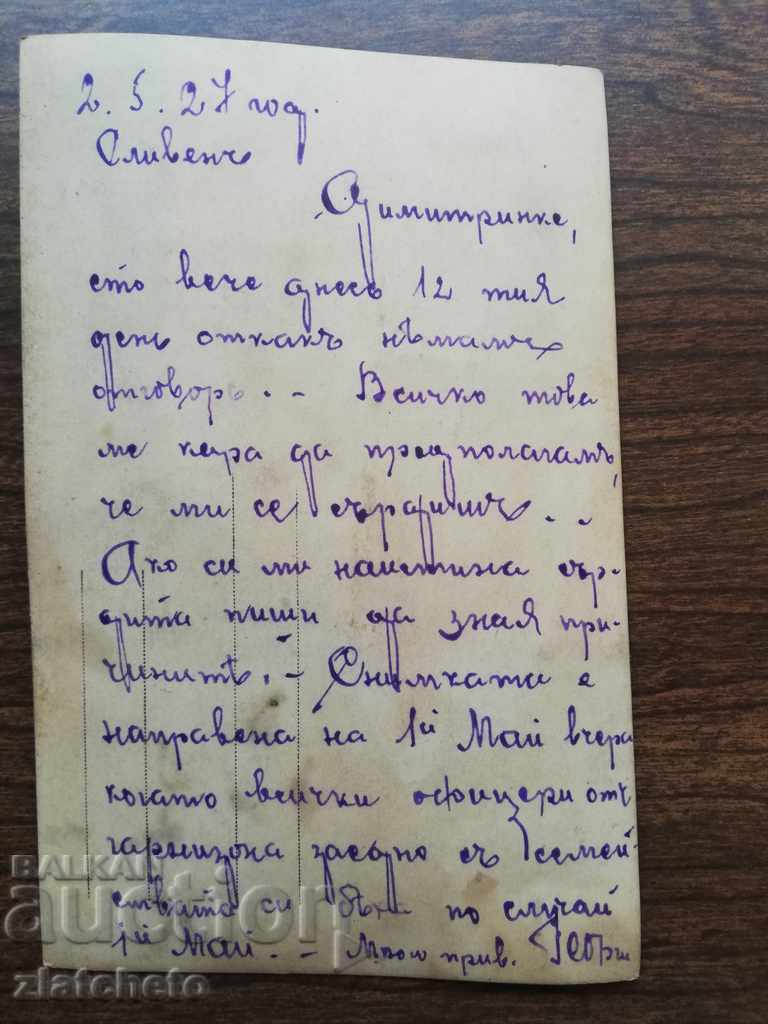 2. 5. 27 год.
Сливенъ
Димитринке,
ето вече днесъ 12 тия
день откакъ нѣмамъ
отговоръ. - Всичко това
ме кара да предполагамъ,
че ми се сърдишъ...
Ако си ми наистина сър-
дита пиши да зная при-
чинитѣ. - Снимката е
направена на 1й Май вчера
когато всички офицери отъ
гарнизона заедно съ семей-
ствата си бѣха по случай
1й Май. - Много прив.
BALKAN
auction
zlatcheto